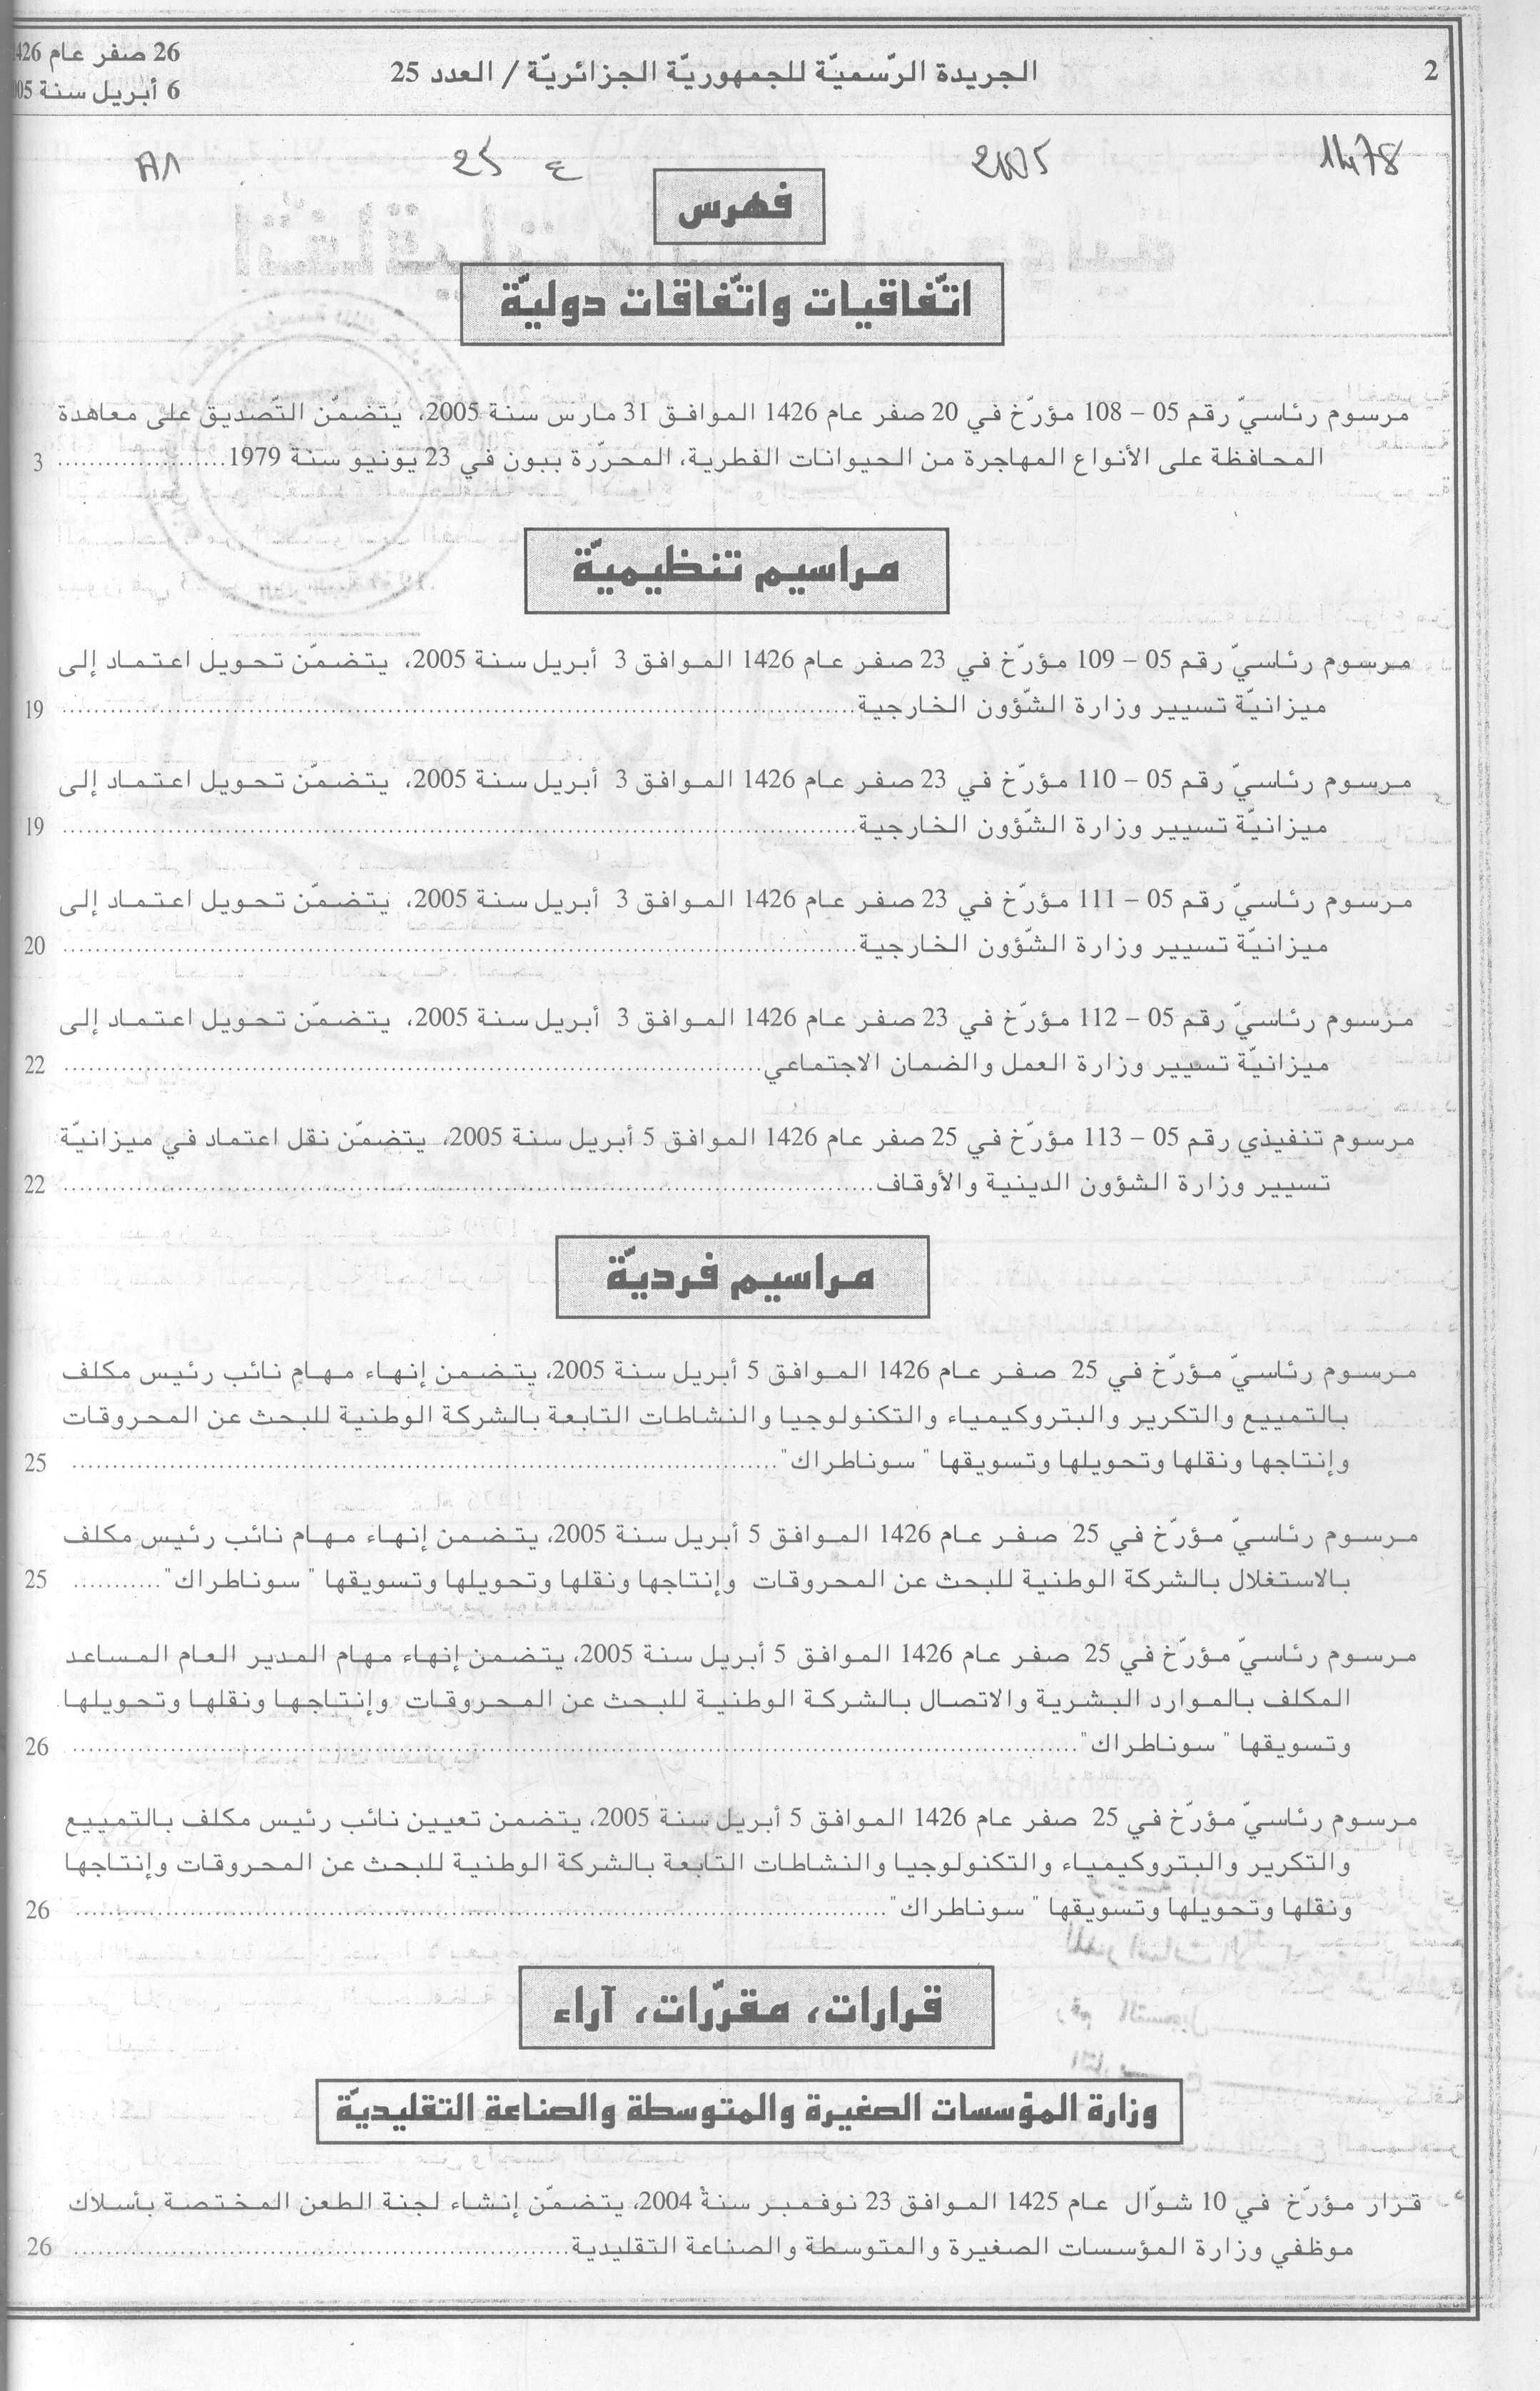 2
الجريدة الرّسميّة للجمهوريّة الجزائريّة / العدد 25
26 صفر عام 1426
6 أبريل سنة 2005
1478 2005 ع 25
فهرس
اتّفاقيات واتّفاقات دوليّة
مرسوم رئاسيّ رقم 05 – 108 مؤرّخ في 20 صفر عام 1426 الموافق 31 مارس سنة 2005، يتضمّن التّصديق على معاهدة
المحافظة على الأنواع المهاجرة من الحيوانات الفطرية، المحرّرة ببون في 23 يونيو سنة 1979..................... 3
مراسيم تنظيميّة
مرسوم رئاسيّ رقم 05 – 109 مؤرّخ في 23 صفر عام 1426 الموافق 3 أبريل سنة 2005، يتضمّن تحويل اعتماد إلى
ميزانيّة تسيير وزارة الشّؤون الخارجية..................... 19
مرسوم رئاسيّ رقم 05 – 110 مؤرّخ في 23 صفر عام 1426 الموافق 3 أبريل سنة 2005، يتضمّن تحويل اعتماد إلى
ميزانيّة تسيير وزارة الشّؤون الخارجية..................... 19
مرسوم رئاسيّ رقم 05 – 111 مؤرّخ في 23 صفر عام 1426 الموافق 3 أبريل سنة 2005، يتضمّن تحويل اعتماد إلى
ميزانيّة تسيير وزارة الشّؤون الخارجية..................... 20
مرسوم رئاسيّ رقم 05 – 112 مؤرّخ في 23 صفر عام 1426 الموافق 3 أبريل سنة 2005، يتضمّن تحويل اعتماد إلى
ميزانيّة تسيير وزارة العمل والضمان الاجتماعي..................... 22
مرسوم تنفيذي رقم 05 – 113 مؤرّخ في 25 صفر عام 1426 الموافق 5 أبريل سنة 2005، يتضمّن نقل اعتماد في ميزانيّة
تسيير وزارة الشؤون الدينية والأوقاف..................... 22
مراسيم فرديّة
مرسوم رئاسيّ مؤرّخ في 25 صفر عام 1426 الموافق 5 أبريل سنة 2005، يتضمن إنهاء مهام نائب رئيس مكلف
بالتمييع والتكرير والبتروكيمياء والتكنولوجيا والنشاطات التابعة بالشركة الوطنية للبحث عن المحروقات
وإنتاجها ونقلها وتحويلها وتسويقها " سوناطراك"..................... 25
مرسوم رئاسيّ مؤرّخ في 25 صفر عام 1426 الموافق 5 أبريل سنة 2005، يتضمن إنهاء مهام نائب رئيس مكلف
بالاستغلال بالشركة الوطنية للبحث عن المحروقات وإنتاجها ونقلها وتحويلها وتسويقها " سوناطراك"........... 25
مرسوم رئاسيّ مؤرّخ في 25 صفر عام 1426 الموافق 5 أبريل سنة 2005، يتضمن إنهاء مهام المدير العام المساعد
المكلف بالموارد البشرية والاتصال بالشركة الوطنية للبحث عن المحروقات وإنتاجها ونقلها وتحويلها
وتسويقها " سوناطراك"..................... 26
مرسوم رئاسيّ مؤرّخ في 25 صفر عام 1426 الموافق 5 أبريل سنة 2005، يتضمن تعيين نائب رئيس مكلف بالتمييع
والتكرير والبتروكيمياء والتكنولوجيا والنشاطات التابعة بالشركة الوطنية للبحث عن المحروقات وإنتاجها
ونقلها وتحويلها وتسويقها " سوناطراك"..................... 26
قرارات، مقرّرات، آراء
وزارة المؤسسات الصغيرة والمتوسطة والصناعة التقليديّة
قرار مؤرّخ في 10 شوّال عام 1425 الموافق 23 نوفمبر سنة 2004، يتضمّن إنشاء لجنة الطعن المختصة بأسلاك
موظفي وزارة المؤسسات الصغيرة والمتوسطة والصناعة التقليدية..................... 26